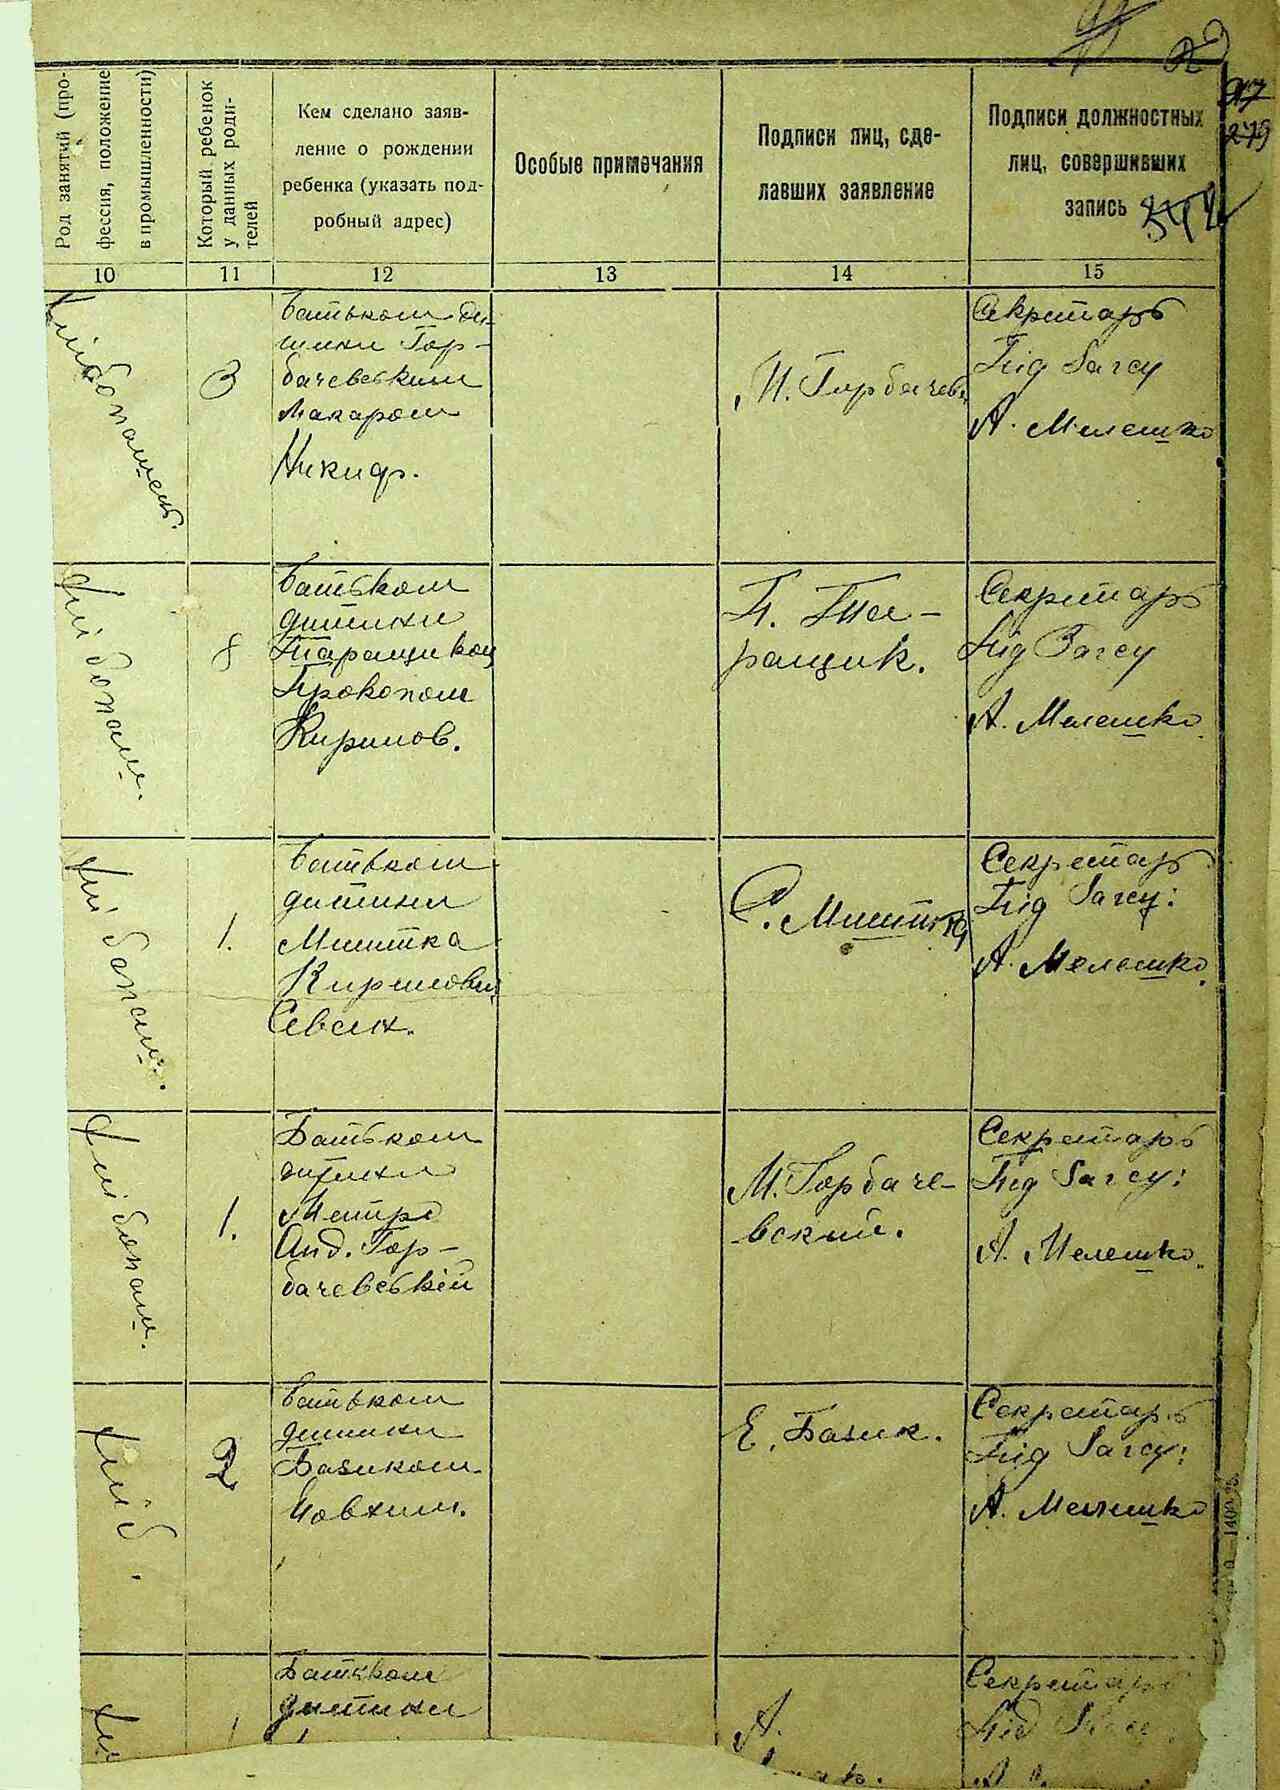 Род занятий (про-
фессия, положение
в промышленности)
Который ребенок
у данных роди-
телей
Кем сделано заяв-
ление о рождении
ребенка (указать под-
робный адрес)
Особые примечания
Подписи лиц, сде-
лавших заявление
Подписи должностных
лиц, совершивших
запись
10
11
12
13
14
15
хлібопашець
3
Батьком ди-
тини Гор-
бачевським
Макаром
Никиф.
Секретарь
Під Загсу
А. Мелешко
хлібопаш.
8
Батьком
дитини
Таращиком
Прокопом
Кирилов.
П. Та-
ращик.
Секретарь
Під Загсу
А. Мелешко
хлібопаш.
1.
Батьком
дитини
Кирилович
С.
Секретарь
Під Загсу:
А. Мелешко
хлібопаш.
1.
Батьком
дитини
Митро
Анд. Гор-
бачевській
М. Горбаче-
вский.
Секретарь
Під Загсу:
А. Мелешко
хліб.
2
Батьком
дитини
Базиком
Йовхим.
Е. Базик.
Секретарь
Під Загсу:
А. Мелешко
Батьком
дитини
А.
Секретарь